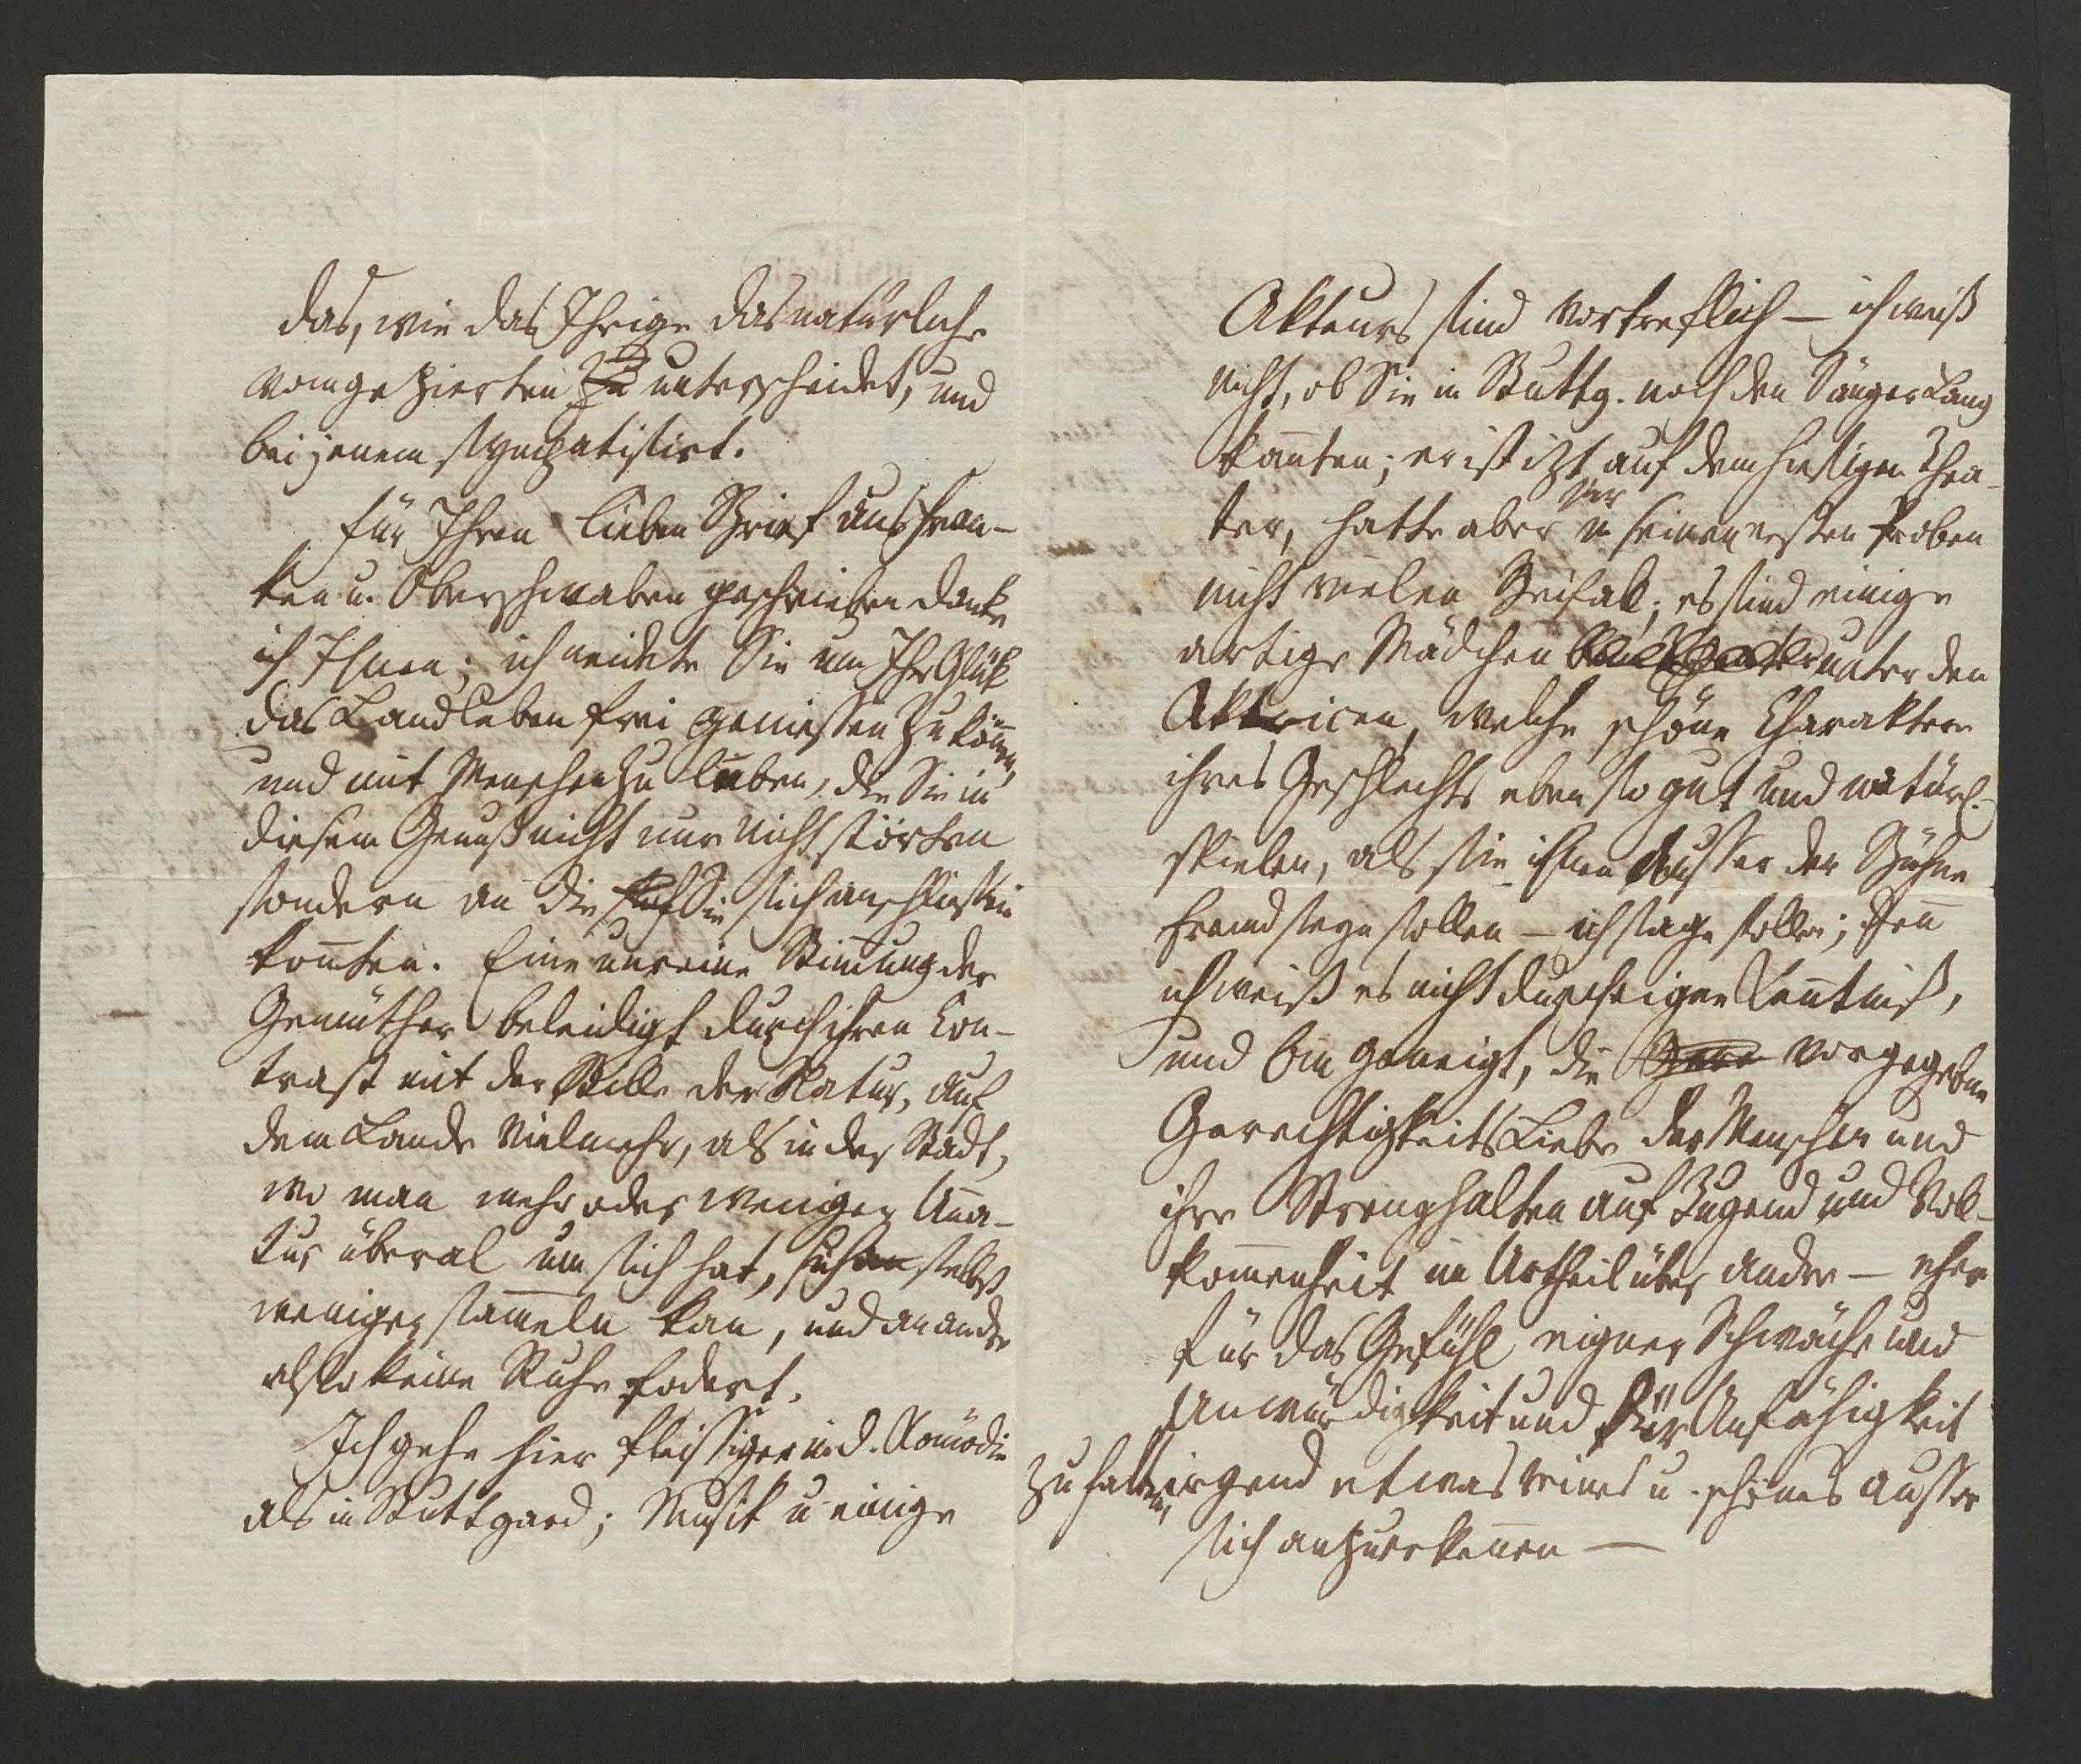 das, wie das Ihrige das natürliche
vom gezierten zu unterscheidet, und
bei jenem sympatisirt.
Für Ihren lieben Brief aus Fran-
ken u. Oberschwaben geschrieben danke
ich Ihnen; ich neidete Sie um Ihr Glük
das Landleben frei geniessen zu könen,
und mit Menschen zu leben, die Sie in
diesem Genuß nicht nur nicht störten
sondern an die Sie sich anschliessen
konten. Eine unreine Stimung der
Gemüther beleidigt durch ihren Con-
trast mit der Stille der Natur, auf
dem Lande vielmehr, als in der Stadt,
wo man mehr oder weniger Una-
tur überal um sich hat, sich selbst
weniger sameln kan, und an andre
also keine Ruhe fodert.
Ich gehe hier fleissiger in d. Komödie
als in Stuttgard; Musik u einige
Akteurs sind vortreflich — ich weiß
nicht, ob Sie in Stuttg. noch den Sänger Lang
kanten; er ist izt auf dem hiesigen Thea-
ter, hatte aber in seinen ersten Proben
nicht vielen Beifall; es sind einige
artige Mädchen unter den
Aktricen, welche schöne Charaktere
ihres Geschlechts eben so gut und natürl.
spielen, als sie ihnen ausser der Bühne
fremd seyn sollen — ich sage sollen; den
ich weiß es nicht durch eigne Kentniß,
und bin geneigt, die vorgegebne
Gerechtigkeits Liebe der Menschen und
ihre Strenghalten auf Tugend und Vol-
komenheit im Urtheil über andre — eher
für das Gefühl eigner Schwäche und
Unwürdigkeit und für Unfähigkeit
zu halten, irgend etwas reines u. schönes ausser
sich anzuerkennen —